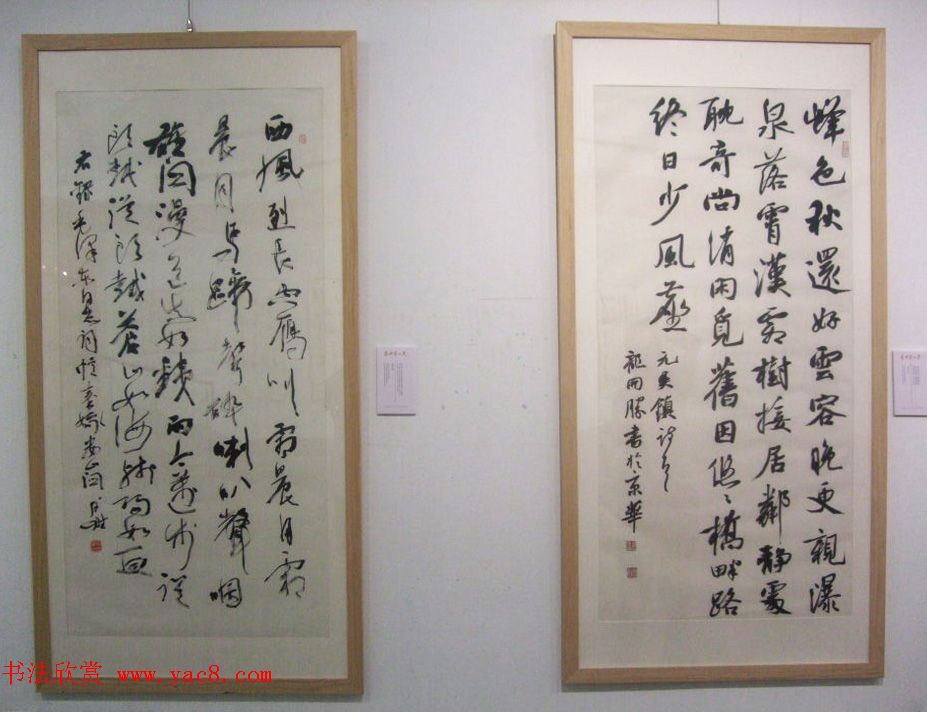 西風烈長空鴈叫霜晨月霜
晨月馬蹄聲碎喇叭聲咽
雄関漫道真如鉄而今邁步從
頭越從頭越蒼山如海残陽如血
右録毛澤東同志詞憶秦娥婁山関
峰色秋還好雲容晚更親瀑
泉落霄漢霜樹接居鄰静處
耽奇尚消閑覓舊因悠〻橋畔路
終日少風塵
元吳鎮詩
開勝書於京華
书法欣赏 www.yac8.com